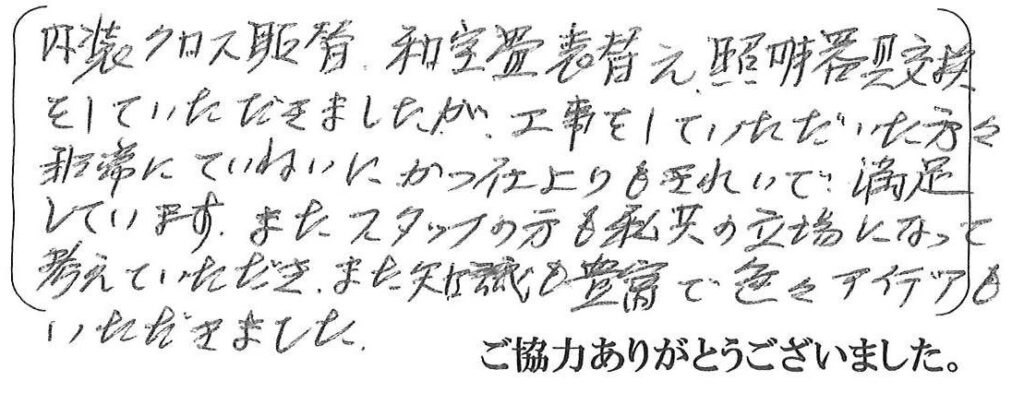 内装クロス貼替、和室畳表替え、照明器具交換
をしていただきましたが、工事をしていただいた方々
非常にていねいに、かつ仕上りもきれいで、満足
しています。またスタッフの方も私共の立場になって
考えていただき、また知識も豊富で色々アイデアも
いただきました。
ご協力ありがとうございました。